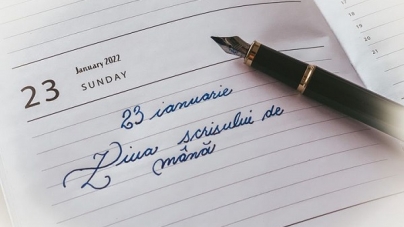 23
January 2022
SUNDAY
23 ianuarie
Ziua scrisului de
mână
17
18
19
20
21